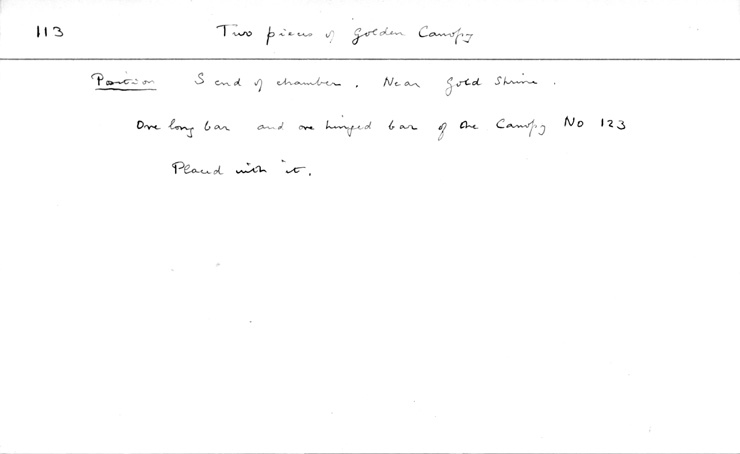 113 Two pieces of golden Canopy
Position S end of chamber. Near Gold Shrine.
One long bar and one hinged bar of the Canopy No 123
Placed with it.